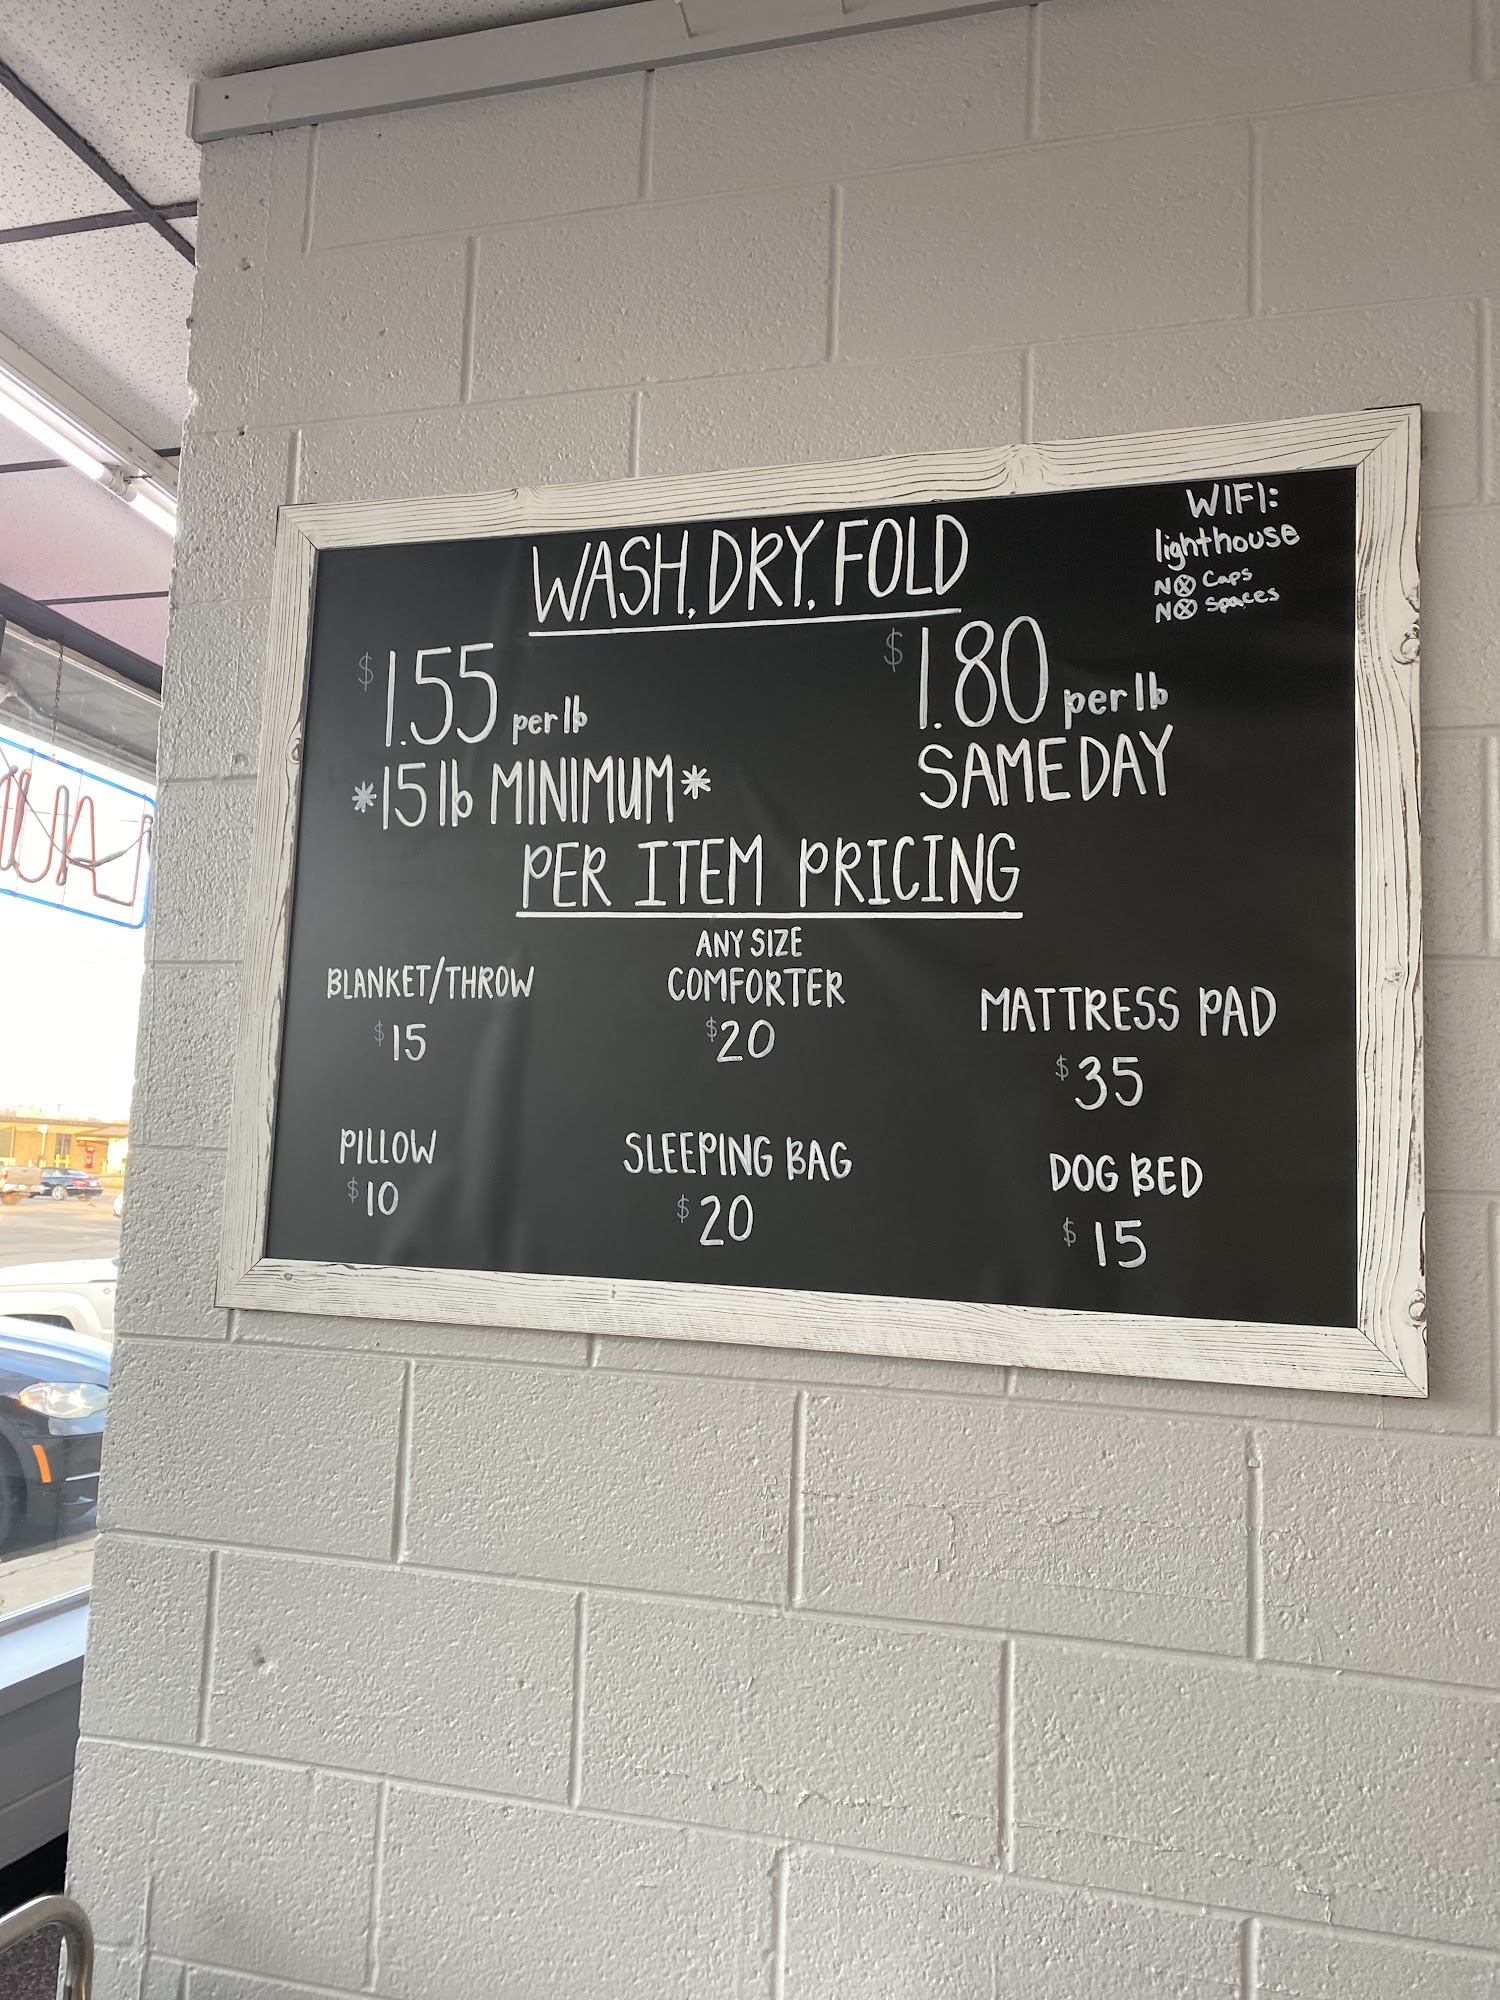 WASH, DRY, FOLD
WIFI:
lighthouse
NO Caps
NO Spaces
$1.55 per lb
*15 lb MINIMUM*
$1.80 per lb
SAME DAY
PER ITEM PRICING
BLANKET/THROW
$15
ANY SIZE
COMFORTER
$20
MATTRESS PAD
$35
PILLOW
$10
SLEEPING BAG
$20
DOG BED
$15